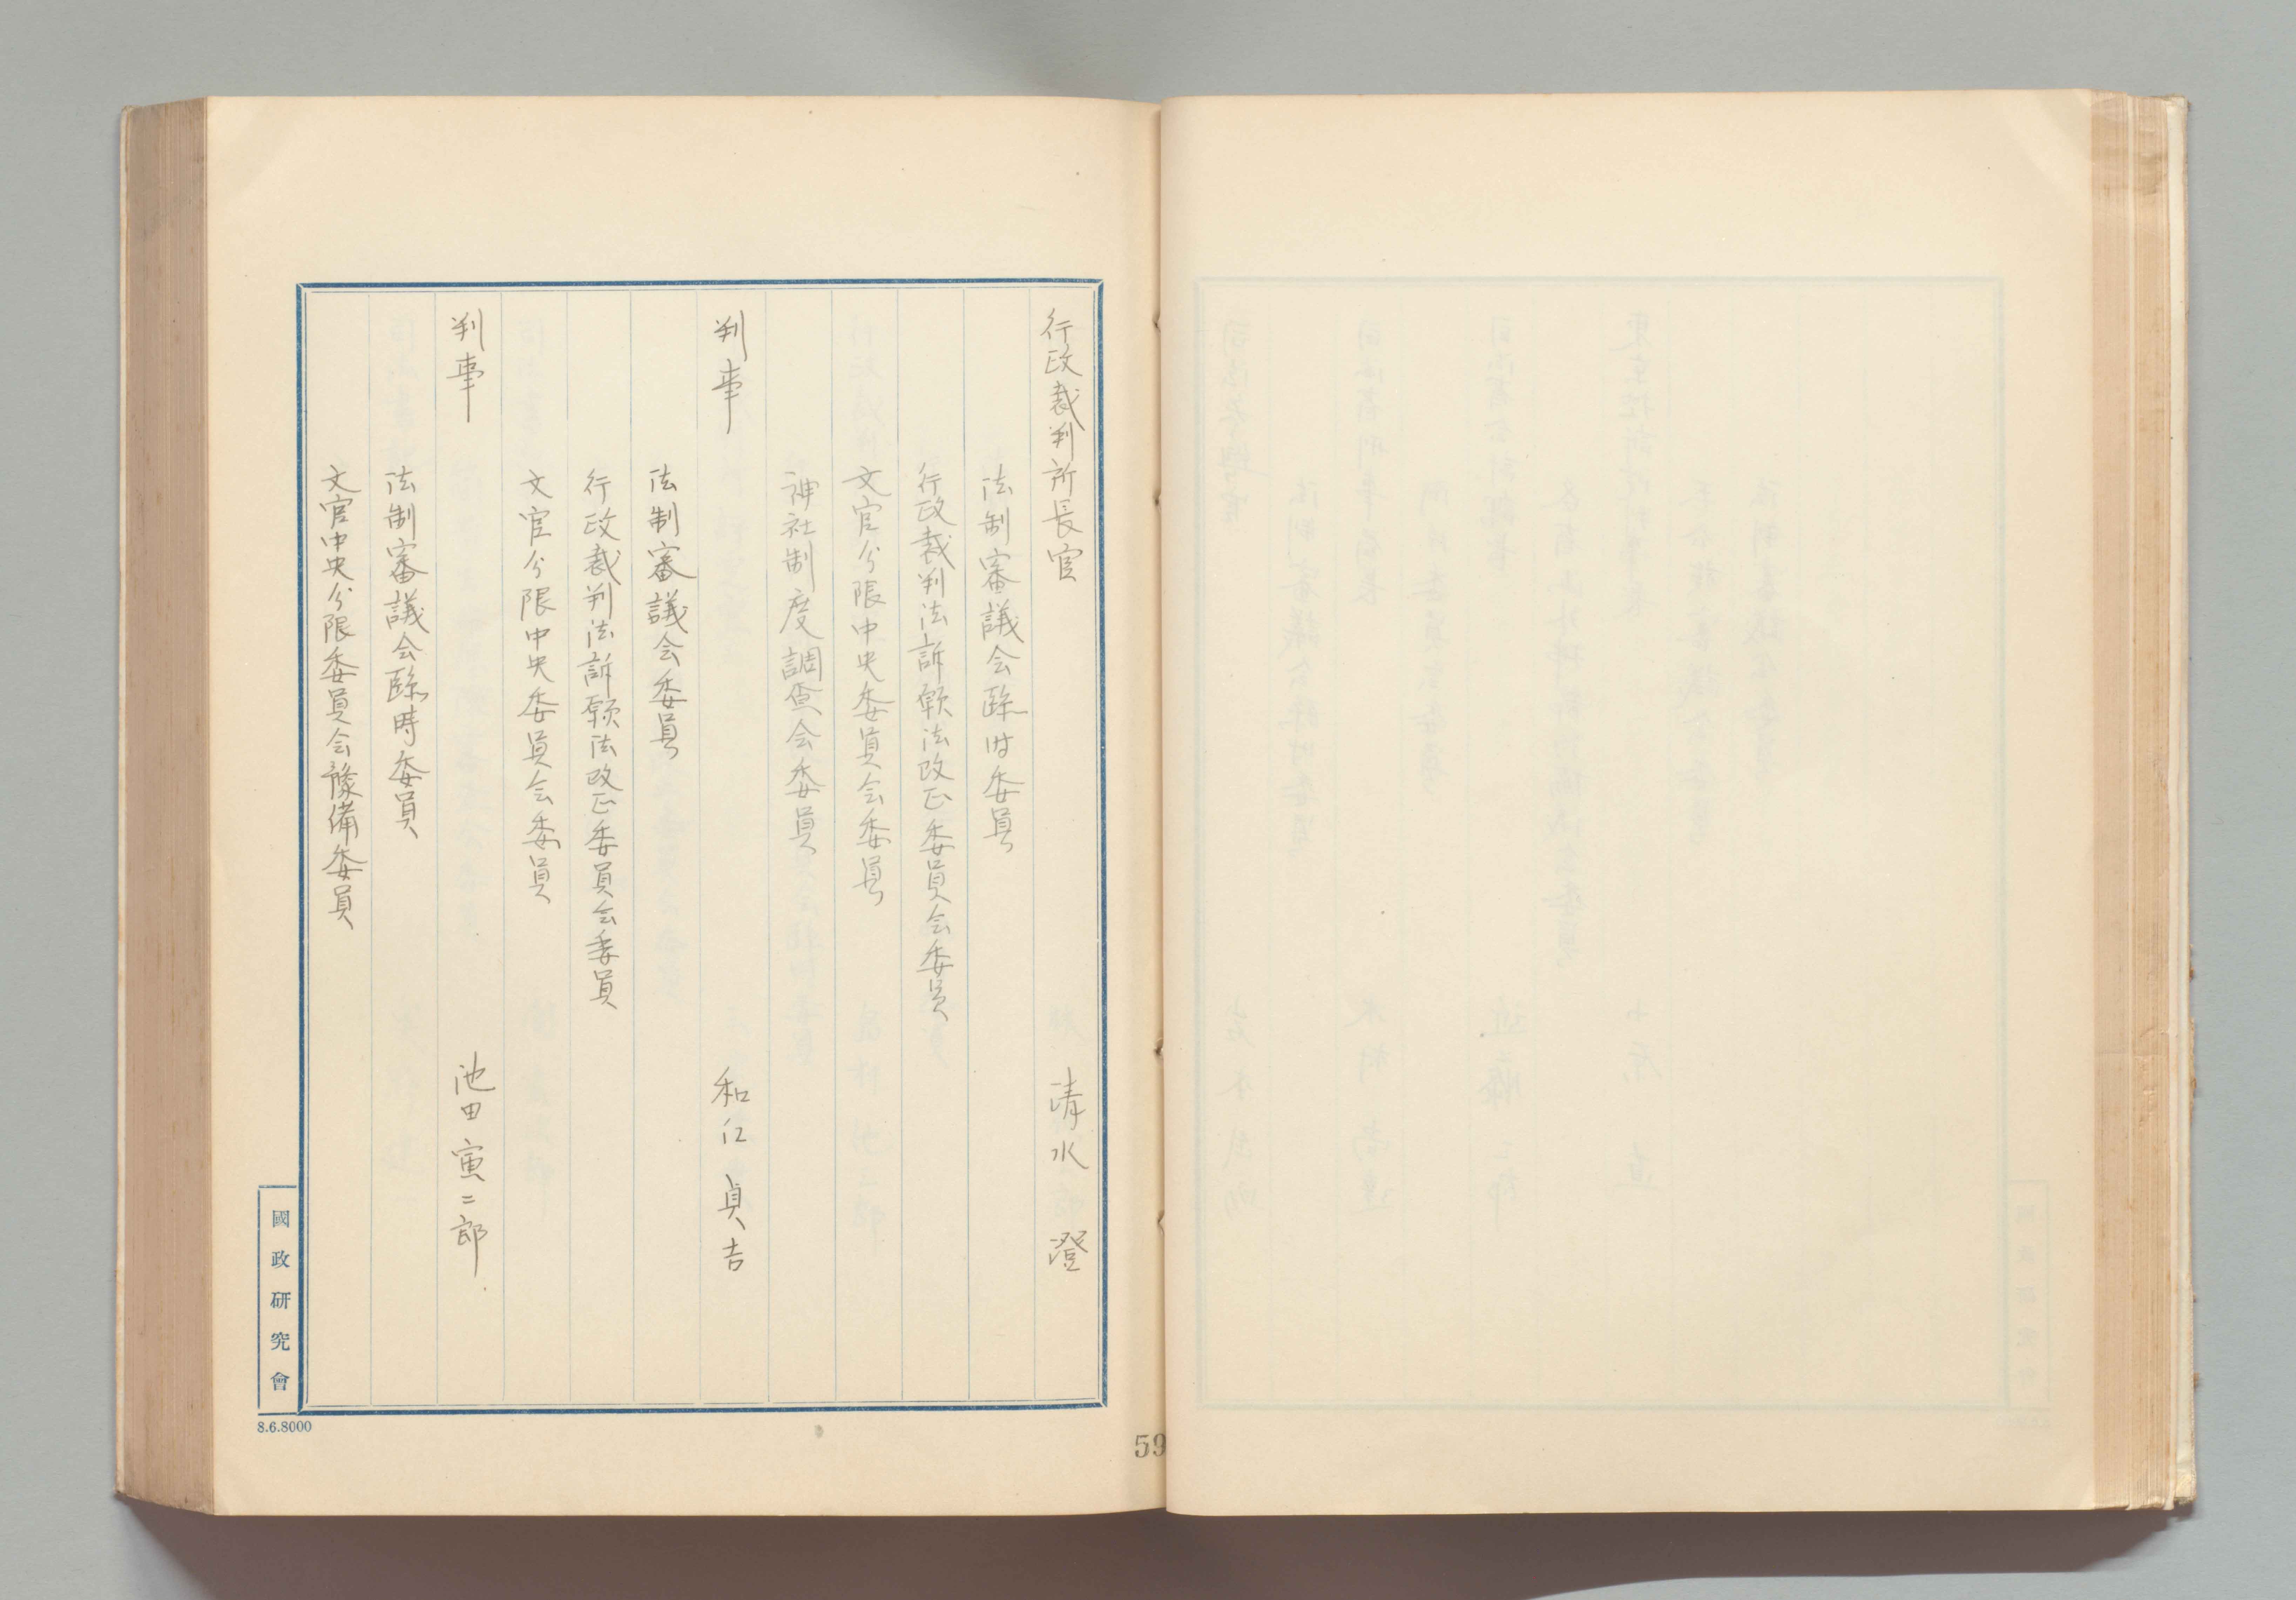 行政裁判所長官 清水 澄
法制審議会臨时委員
行政裁判法訴願法改正委員会委員
文官分限中央委員会委員
神社制度調査会委員
判事 和仁 貞吉
法制審議会委員
行政裁判法訴願法改正委員会委員
文官分限中央委員会委員
判事 池田 寅二郎
法制審議会臨時委員
文官中央分限委員会豫備委員
國政研究會
8.6.8000
59